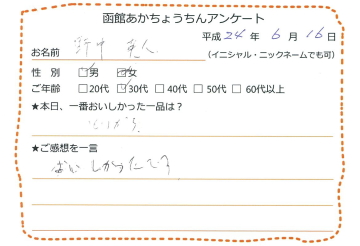 函館あかちょうちんアンケート
平成 24 年 6 月 16 日
お名前 野中
(イニシャル・ニックネームでも可)
性 別 □男 □女
ご年齢 □20代 ☑30代 □40代 □50代 □60代以上
★本日、一番おいしかった一品は？
★ご感想を一言
おいしかったです